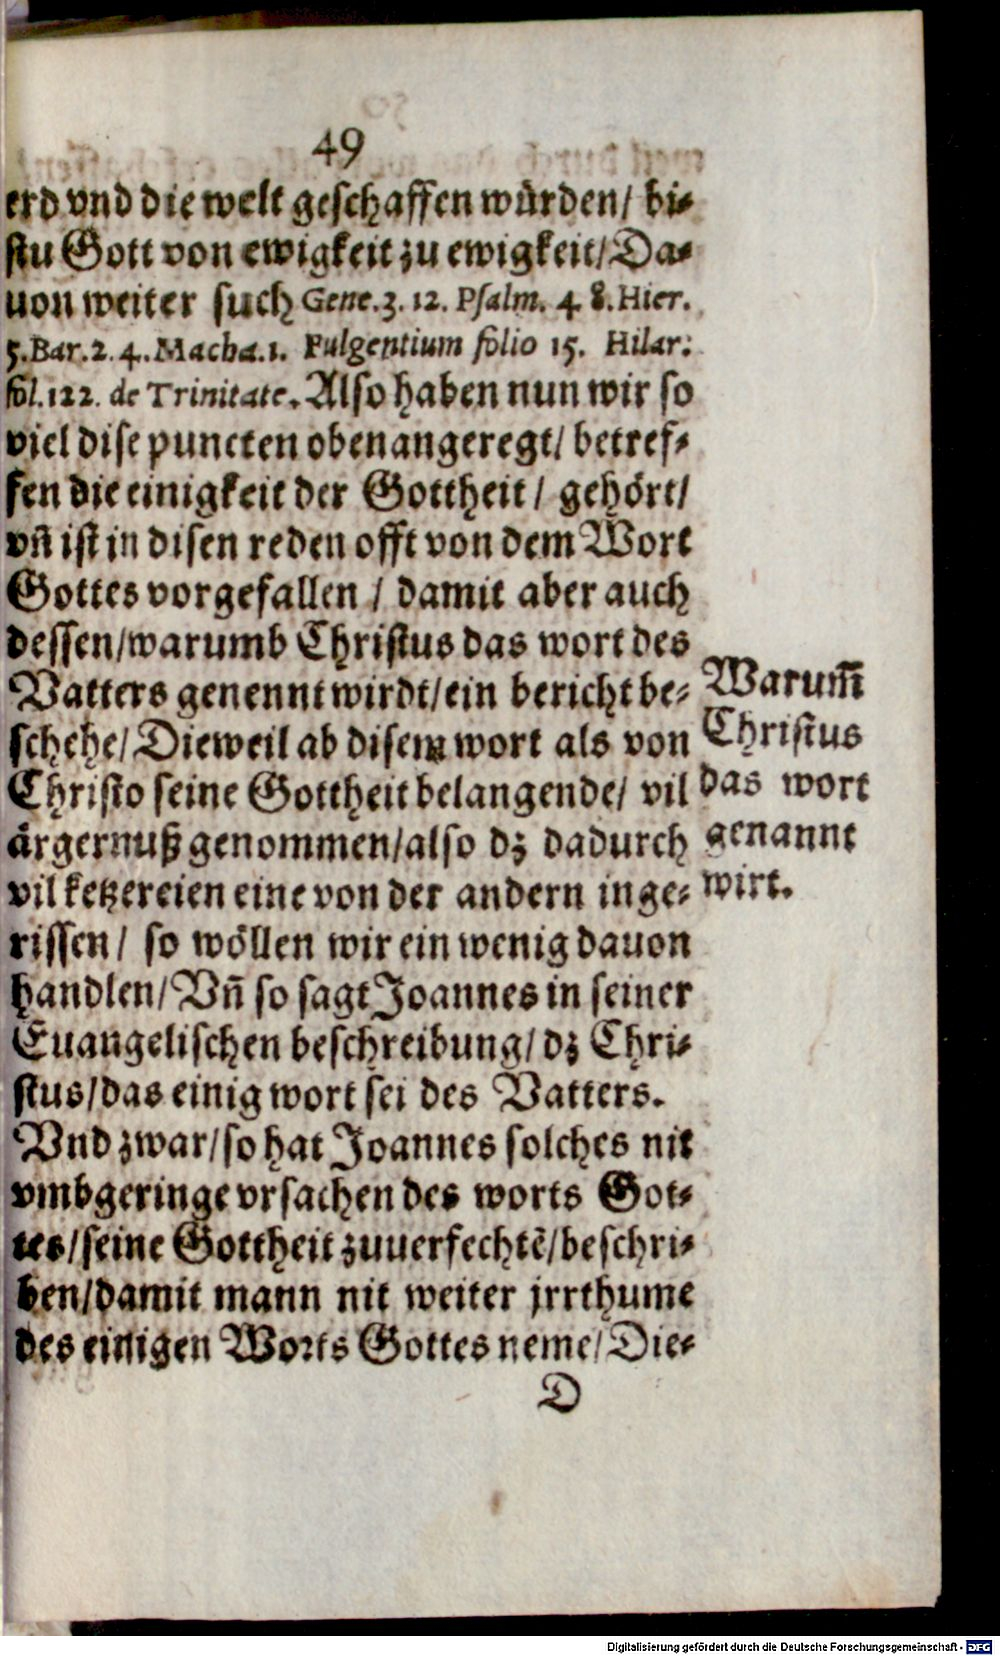 49
erd vnd die welt geschaffen würden/ bi-
stu Gott von ewigkeit zu ewigkeit/ Da-
uon weiter such Gene. 3. 12. Psalm. 4 8. Hier.
5. Bar. 2. 4. Macha. 1. Fulgentium folio 15. Hilar:
fol. 122. de Trinitate. Also haben nun wir so
viel dise puncten oben angeregt/ betref-
fen die einigkeit der Gottheit / gehört/
vñ ist in disen reden offt von dem Wort
Gottes vorgefallen / damit aber auch
dessen/warumb Christus das wort des
Vatters genennt wirdt/ein bericht be-
schehe/ Dieweil ab disem wort als von
Christo seine Gottheit belangende/ vil
ärgernuß genommen/also dz dadurch
vil ketzereien eine von der andern inge-
rissen/ so wöllen wir ein wenig dauon
handlen/ Vñ so sagt Joannes in seiner
Euangelischen beschreibung/ dz Chri-
stus/das einig wort sei des Vatters.
Vnd zwar/so hat Joannes solches nit
vmb geringe vrsachen des worts Got-
tes/seine Gottheit zuuerfechtẽ/beschri-
ben/damit mann nit weiter jrrthume
des einigen Worts Gottes neme/ Die-
D
Warum̃
Christus
das wort
genannt
wirt.
Digitalisierung gefördert durch die Deutsche Forschungsgemeinschaft - DFG